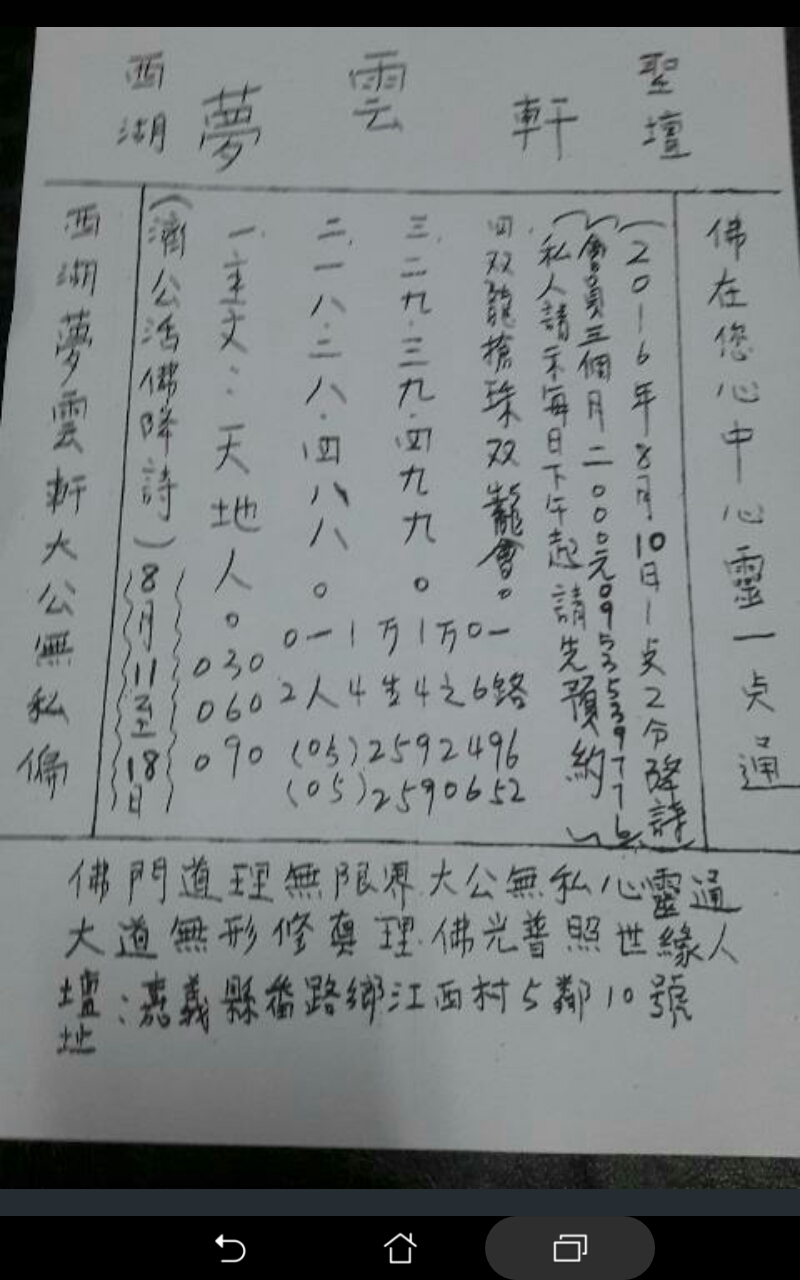 西湖 夢雲軒 聖壇
佛在您心中心靈一点通
(2016年8月10日1点2分降詩)
(會員三個月二000元0953539776)
(私人請示每日下午起請先預約)
四双龍搶珠双龍會。
三、二九·三九·四九九。
二、一八·二八·四八八。
一、主文：天地人。
(濟公活佛降詩)
8月11至18日
西湖夢雲軒大公無私偏
030
060
090
0一1万1万0一
2人4生4之6路
(05)2592496
(05)2590652
佛門道理無限界.大公無私心靈通
大道無形修真理.佛光普照世緣人
壇址：嘉義縣番路鄉江西村5鄰10號